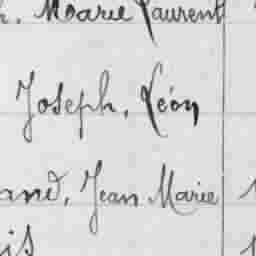 Marie Laurent
Joseph, Léon
and, Jean Marie
is